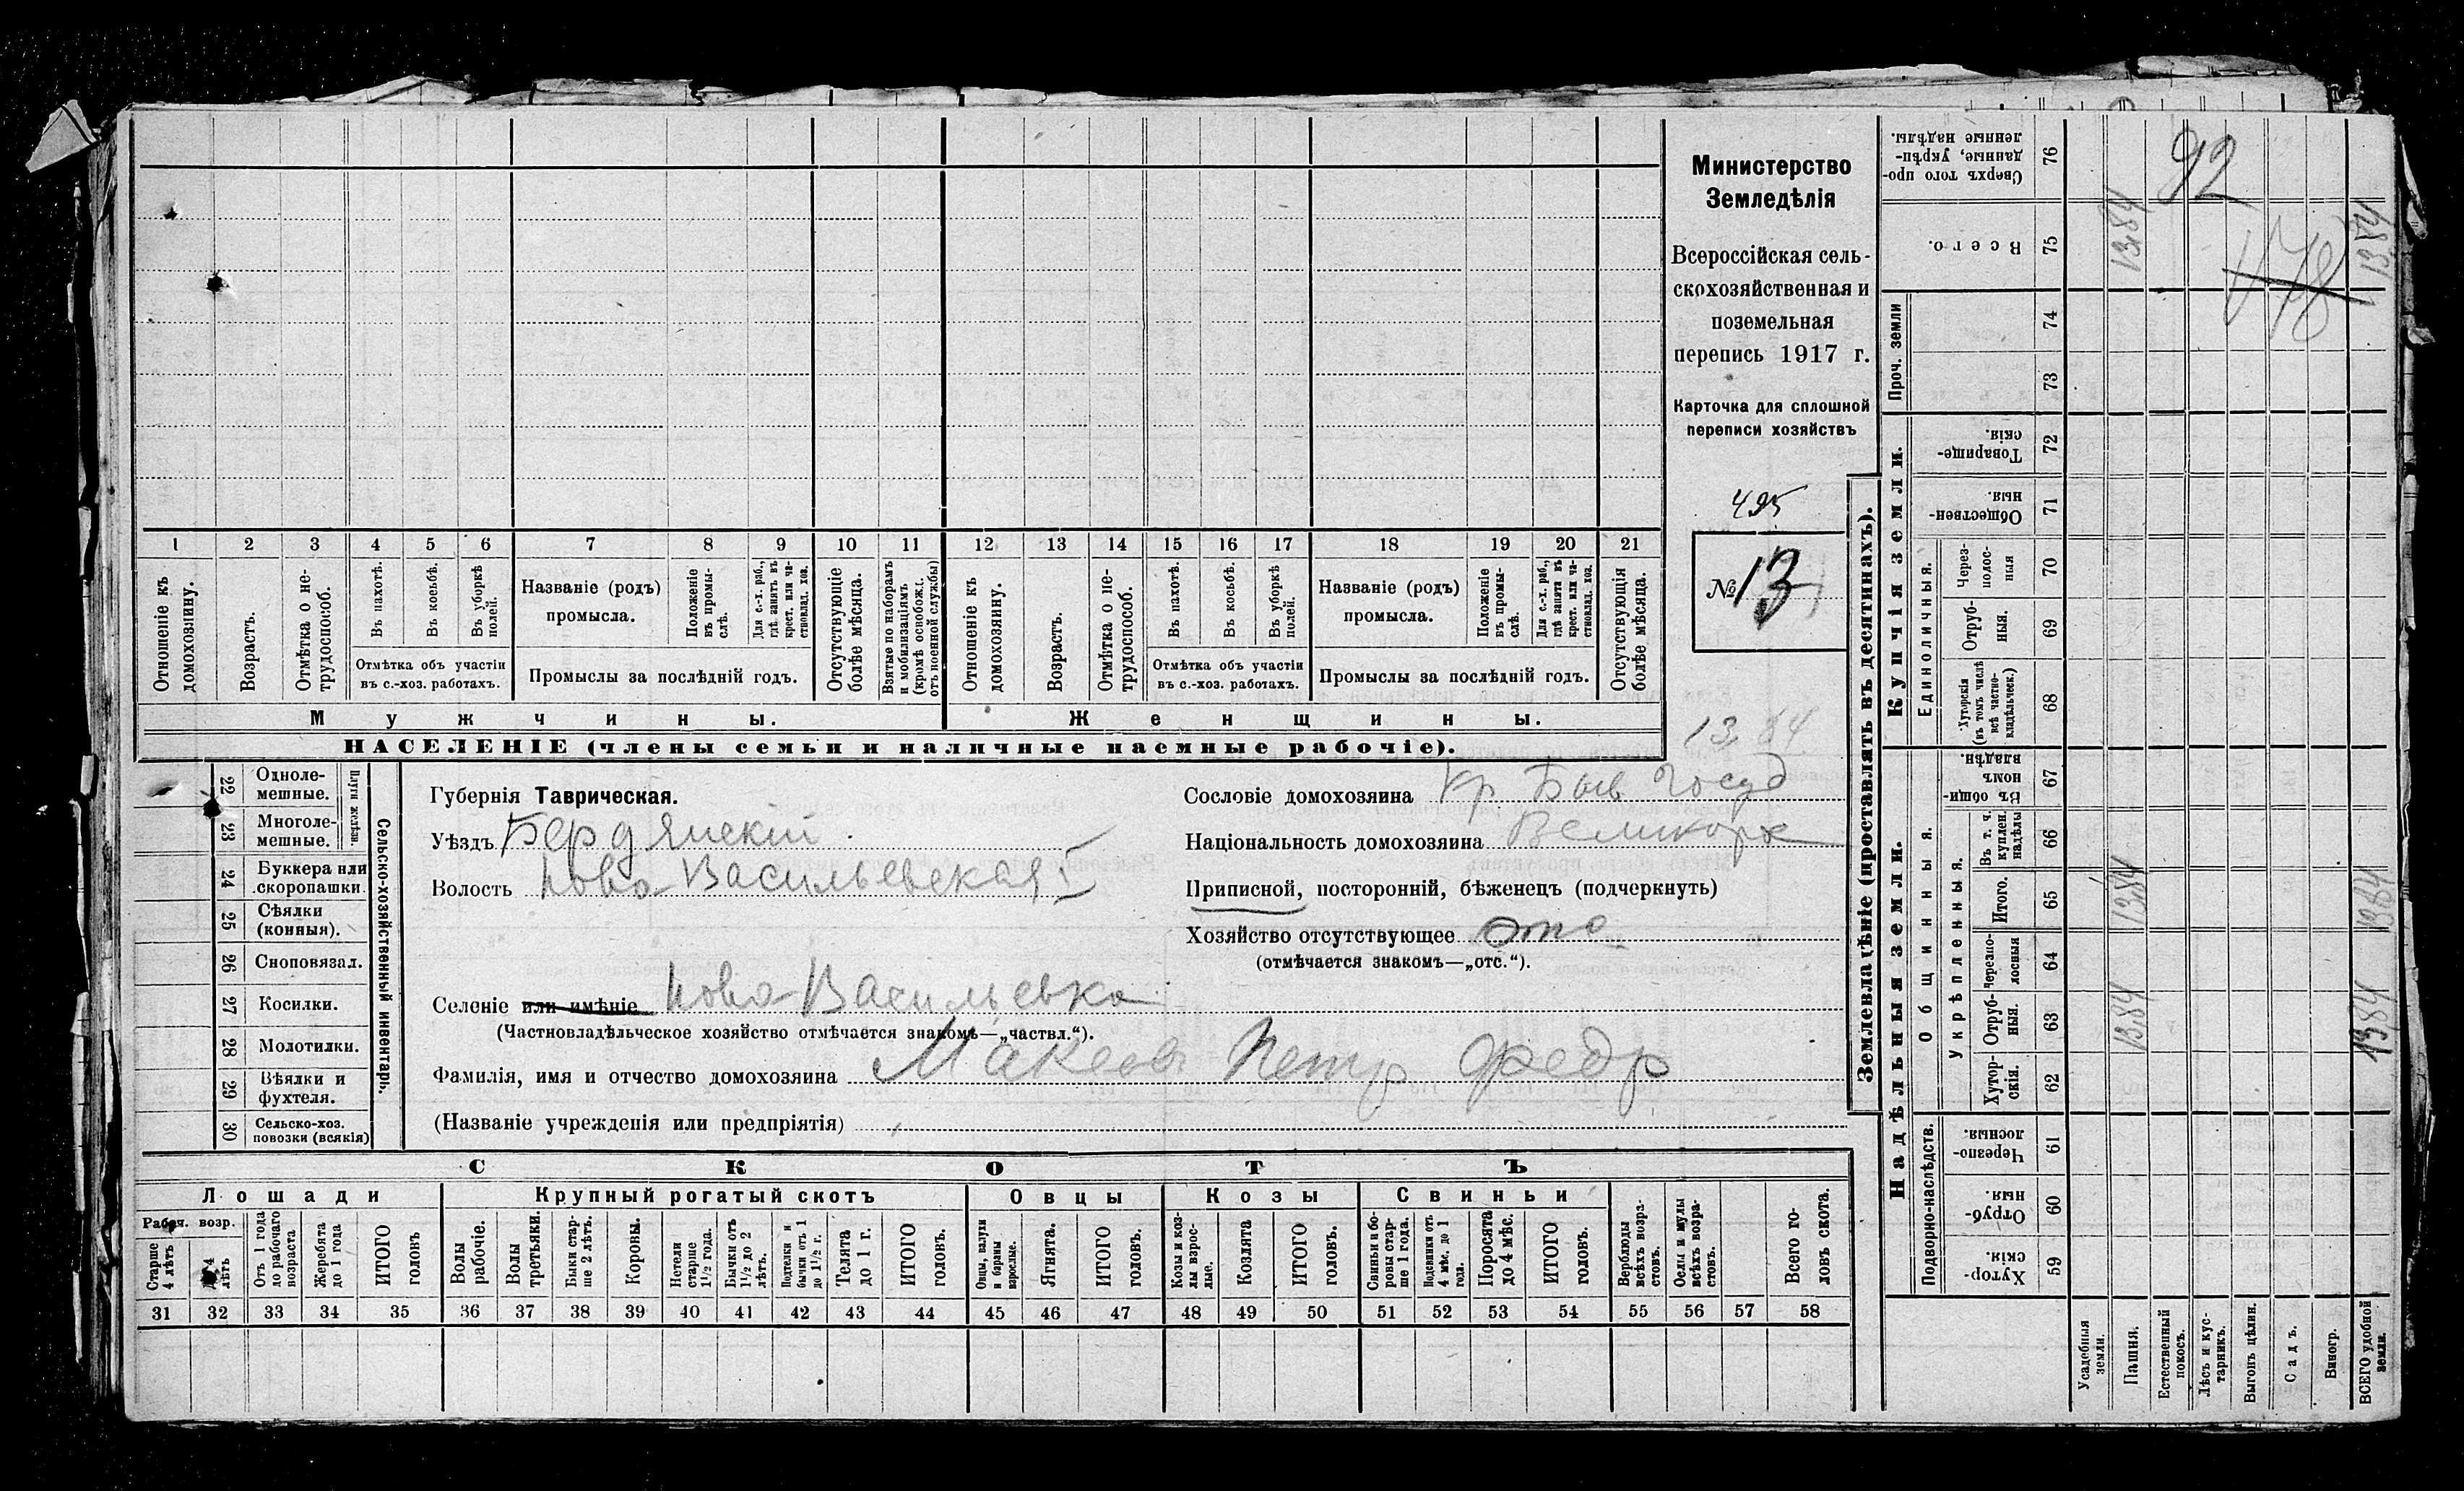 1 2 3 4 5 6 7 8 9 10 11 12 13 14 15 16 17 18 19 20 21
Отношеніе къ домохозяину.
Возрастъ.
Отмѣтка о нетрудоспособ.
Въ пахотѣ.
Въ косьбѣ.
Въ уборкѣ полей.
Отмѣтка объ участіи
въ с.-хоз. работахъ.
Названіе (родъ)
промысла.
Положеніе въ промыслѣ.
Для с.-х. раб., гдѣ занятъ въ крест. или частновлад. хоз.
Промыслы за послѣдній годъ.
Отсутствующіе болѣе мѣсяца.
Взятые по наборамъ и мобилизаціямъ (кромѣ освобожд. отъ военной службы)
Отношеніе къ домохозяину.
Возрастъ.
Отмѣтка о нетрудоспособ.
Въ пахотѣ.
Въ косьбѣ.
Въ уборкѣ полей.
Отмѣтка объ участіи
въ с.-хоз. работахъ.
Названіе (родъ)
промысла.
Положеніе въ промыслѣ.
Для с.-х. раб., гдѣ занята въ крест. или частновлад. хоз.
Промыслы за послѣдній годъ.
Отсутствующія болѣе мѣсяца.
Мужчины.
Женщины.
НАСЕЛЕНІЕ (члены семьи и наличные наемные рабочіе).
Министерство
Земледѣлія
Всероссійская сель-
скохозяйственная и
поземельная
перепись 1917 г.
Карточка для сплошной
переписи хозяйствъ
495
№ 13
13 84
Сельско-хозяйственный инвентарь.
Плуги желѣзн.
22 Однолемешные.
23 Многолемешные.
24 Буккера или скоропашки.
25 Сѣялки (конныя).
26 Сноповязал.
27 Косилки.
28 Молотилки.
29 Вѣялки и фухтеля.
30 Сельско-хоз. повозки (всякія)
Губернія Таврическая.
Уѣздъ Бердянскій
Волость Ново-Васильевская
Селеніе или имѣніе Ново-Васильевка
(Частновладѣльческое хозяйство отмѣчается знакомъ—„частвл.“).
Фамилія, имя и отчество домохозяина Макеев Петр Федр
(Названіе учрежденія или предпріятія)
Сословіе домохозяина Кр. Быв Госуд
Національность домохозяина Великорс
Приписной, посторонній, бѣженецъ (подчеркнуть)
Хозяйство отсутствующее отс
(отмѣчается знакомъ—„отс.“).
СКОТЪ
Лошади
Крупный рогатый скотъ
Овцы
Козы
Свиньи
Рабоч. возр.
Старше 4 лѣтъ
До 4 лѣтъ
Отъ 1 года до рабочаго возраста
Жеребята до 1 года
ИТОГО головъ
Волы рабочіе.
Волы третьяки.
Быки старше 2 лѣтъ.
Коровы.
Нетели старше 1½ года.
Бычки отъ 1½ до 2 лѣтъ.
Подтелки и бычки отъ 1 до 1½ г.
Телята до 1 г.
ИТОГО головъ.
Овцы, валухи и бараны взрослые.
Ягнята.
ИТОГО головъ.
Козы и козлы взрослые.
Козлята
ИТОГО головъ.
Свиньи и боровы старше 1 года.
Подсвинки отъ 4 мѣс. до 1 года.
Поросята до 4 мѣс.
ИТОГО головъ.
Верблюды всѣхъ возрастовъ.
Ослы и мулы всѣхъ возрастовъ.
Всего головъ скота.
31 32 33 34 35 36 37 38 39 40 41 42 43 44 45 46 47 48 49 50 51 52 53 54 55 56 57 58
Землевладѣніе (проставлять въ десятинахъ).
Купчія земли.
Надѣльныя земли.
Проч. земли
Единоличныя.
Общинныя.
Укрѣпленныя.
Подворно-наслѣдств.
Сверхъ того проданные, укрѣпленные надѣлы. 76
Всего. 75
74
73
Товарищескія. 72
Общественныя. 71
Черезполосныя 70
Отрубныя. 69
Хуторскія (въ томъ числѣ всѣ частновладѣльческ.) 68
Въ общинномъ владѣн. 67
Въ т. ч. куплен. надѣлы 66
Итого. 65
Черезполосныя 64
Отрубныя. 63
Хуторскія. 62
Черезполосныя. 61
Отрубныя. 60
Хуторскія. 59
Усадебныя земли.
Пашня.
Естественный покосъ.
Лѣсъ и кустарникъ.
Выгонъ цѣлин.
Садъ.
Виногр.
ВСЕГО удобной земли.
92
178
13,84
13,84
13,84
13,84
13,84
13,84